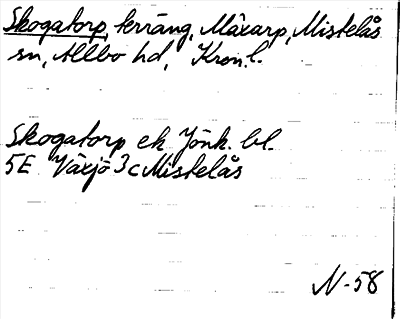 Skogatorp, terräng, Måxarp, Mistelås
sn, Allbo hd, Kron.l.
Skogatorp ek Jönk. bl.
5E Växjö 3c Mistelås
N-58